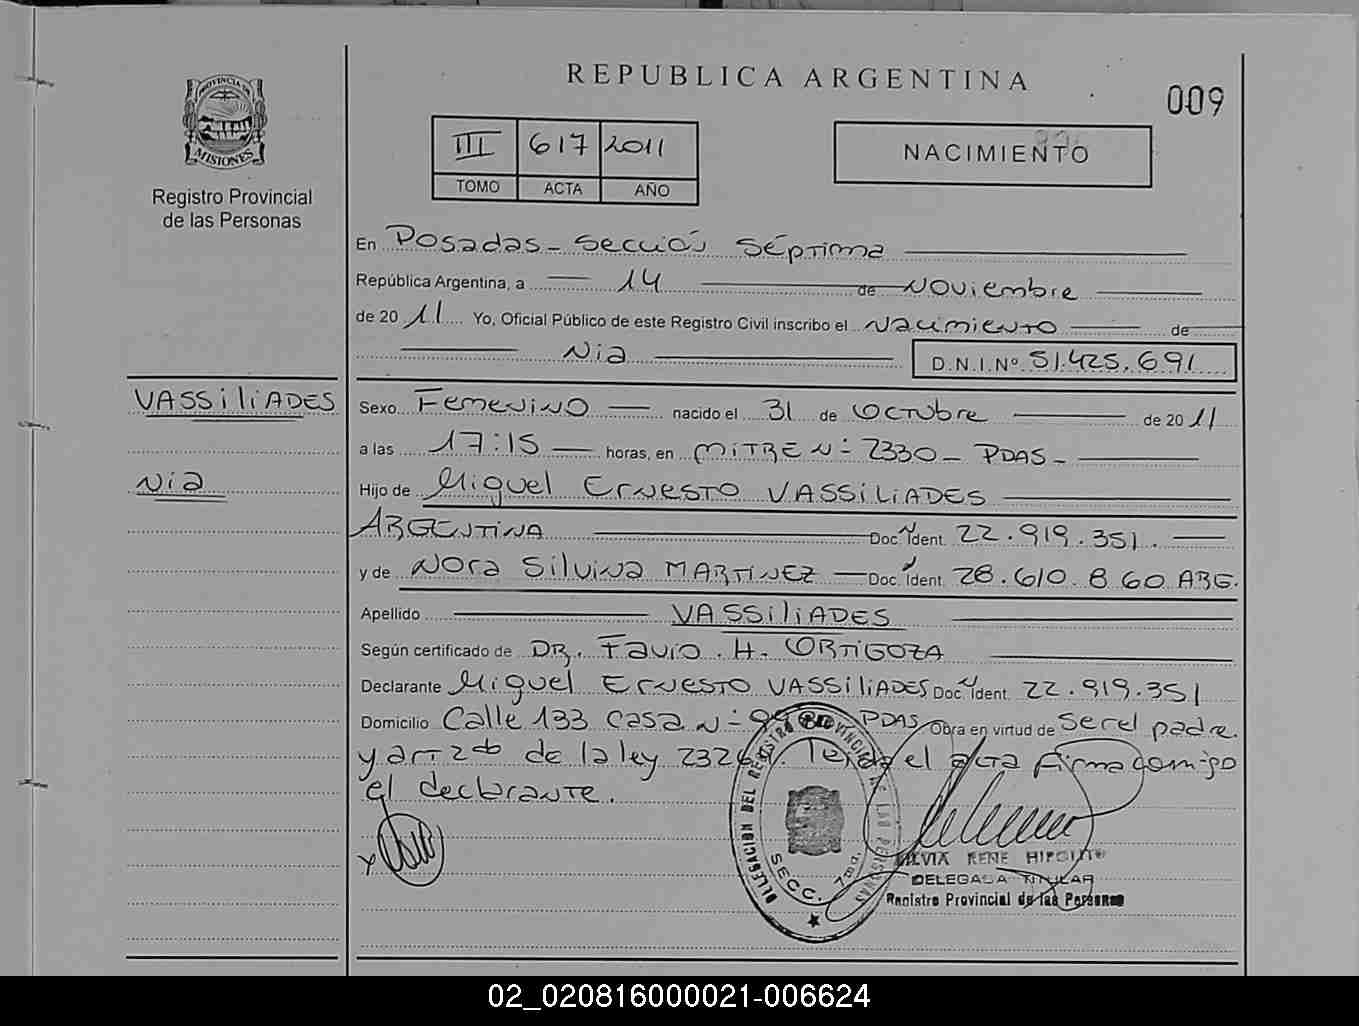 REPUBLICA ARGENTINA
009
PROVINCIA DE
MISIONES
Registro Provincial
de las Personas
III 617 2011
TOMO ACTA AÑO
NACIMIENTO
En Posadas - Sección Séptima
República Argentina, a 14 de Noviembre
de 20 11 Yo, Oficial Público de este Registro Civil inscribo el Nacimiento de
Nia D.N.I.Nº 51.425.691
VASSILIADES
Nia
Sexo Femenino nacido el 31 de Octubre de 20 11
a las 17:15 horas, en MITRE Nº 2330 - PDAS -
Hijo de Miguel Ernesto VASSILIADES
ARGENTINA Doc. Ident. 22.919.351.
y de Nora Silvina MARTINEZ Doc. Ident. 28.610.860 ARG.
Apellido VASSILIADES
Según certificado de DR. Favio. H. ORTIGOZA
Declarante Miguel Ernesto VASSILIADES Doc. Ident. 22.919.351
Domicilio Calle 133 casa Nº PDAS Obra en virtud de ser el padre
y art 2do de la ley el acta firma conmigo
el declarante.
DELEGACION DEL REGISTRO PROVINCIAL DE LAS PERSONAS
SECC. 7ma.
SILVIA RENE HIPOLITO
DELEGADA TITULAR
Registro Provincial de las Personas
02_020816000021-006624